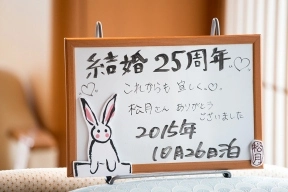 結婚25周年♡
これからも 宜しく♡。
松月さん ありがとう
ございました
2015年
10月26日泊
松月